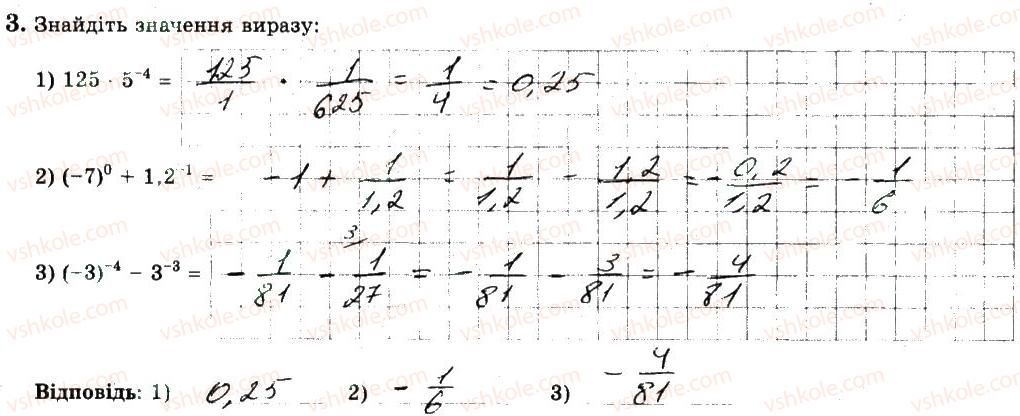 3. Знайдіть значення виразу:
1) 125 · 5⁻⁴ = 125/1 · 1/625 = 1/4 = 0,25
2) (−7)⁰ + 1,2⁻¹ = −1 + 1/1,2 = 1/1,2 − 1,2/1,2 = −0,2/1,2 = −1/6
3) (−3)⁻⁴ − 3⁻³ = −1/81 − ³⁄1/27 = −1/81 − 3/81 = −4/81
Відповідь: 1) 0,25 2) −1/6 3) −4/81
vshkole.com